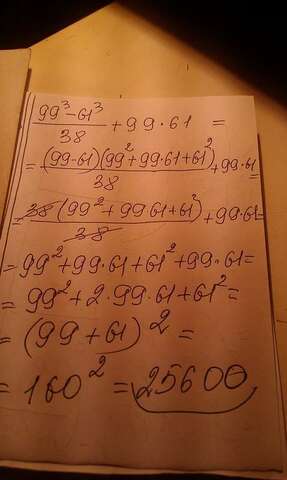 (99³ - 61³)/38 + 99·61 =
= (99-61)(99²+99·61+61²)/38 + 99·61 =
= 38(99²+99·61+61²)/38 + 99·61 =
= 99²+99·61+61²+99·61 =
= 99²+2·99·61+61² =
= (99+61)² =
= 160² = 25600